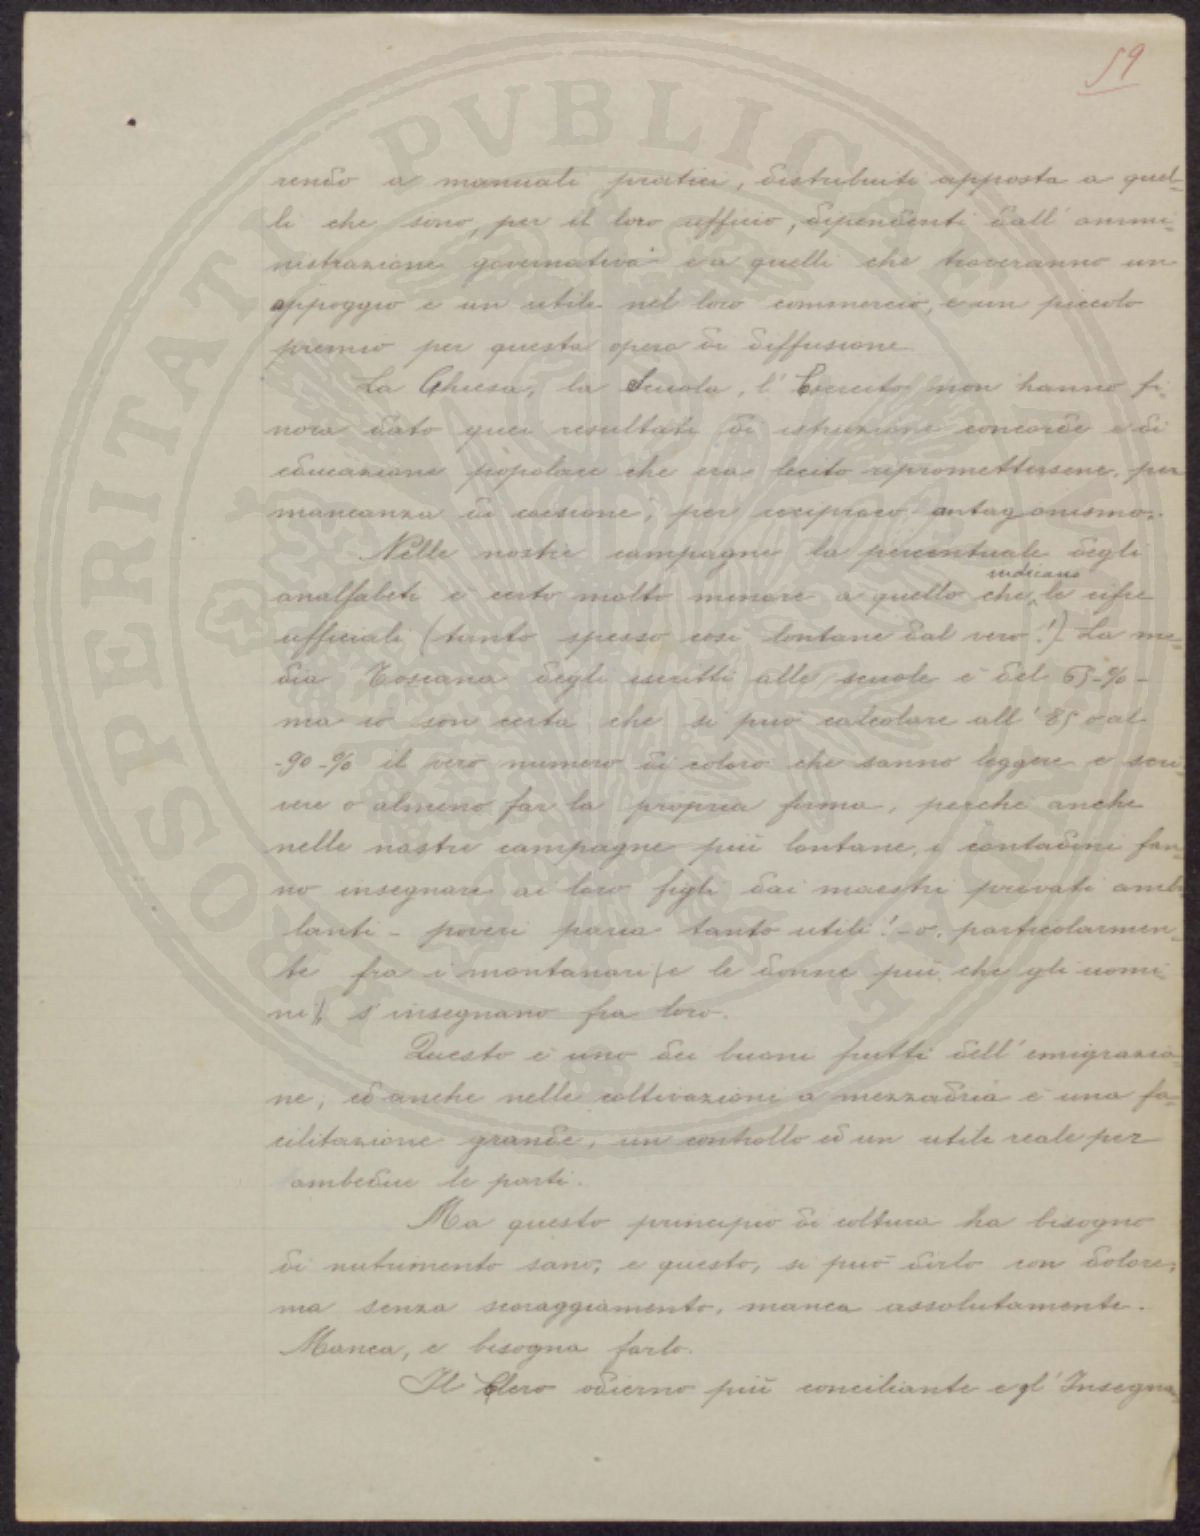 59
rendo a manuali pratici, distribuiti apposta a quel-
li che sono, per il loro ufficio, dipendenti dall'ammi-
nistrazione governativa e a quelli che troveranno un
appoggio e un utile nel loro commercio, e un piccolo
premio per questa opera di diffusione
La Chiesa, la Scuola, l'Esercito non hanno fi-
nora dato quei resultati di istruzione concorde e di
educazione popolare che era lecito ripromettersene, per
mancanza di coesione, per reciproco antagonismo.
Nelle nostre campagne la percentuale degli
indicano
analfabeti è certo molto minore a quello che le cifre
ufficiali (tanto spesso così lontane dal vero!) La me-
dia Toscana degli iscritti alle scuole è del 65-%-
ma io son certa che si può calcolare all'85 o al
-90-% il vero numero di coloro che sanno leggere e scri-
vere o almeno far la propria firma, perchè anche
nelle nostre campagne più lontane, i contadini fan-
no insegnare ai loro figli dai maestri privati ambu-
lanti - poveri paria tanto utili! - o, particolarmen-
te fra i montanari (e le donne più che gli uomi-
ni), s'insegnano fra loro.
Questo è uno dei buoni frutti dell'emigrazio-
ne, ed anche nelle coltivazioni a mezzadria è una fa-
cilitazione grande, un controllo ed un utile reale per
ambedue le parti.
Ma questo principio di coltura ha bisogno
di nutrimento sano, e questo, si può dirlo con dolore,
ma senza scoraggiamento, manca assolutamente.
Manca, e bisogna farlo.
Il Clero odierno più conciliante e gl'Insegna-
PROSPERITATI PVBLICAE